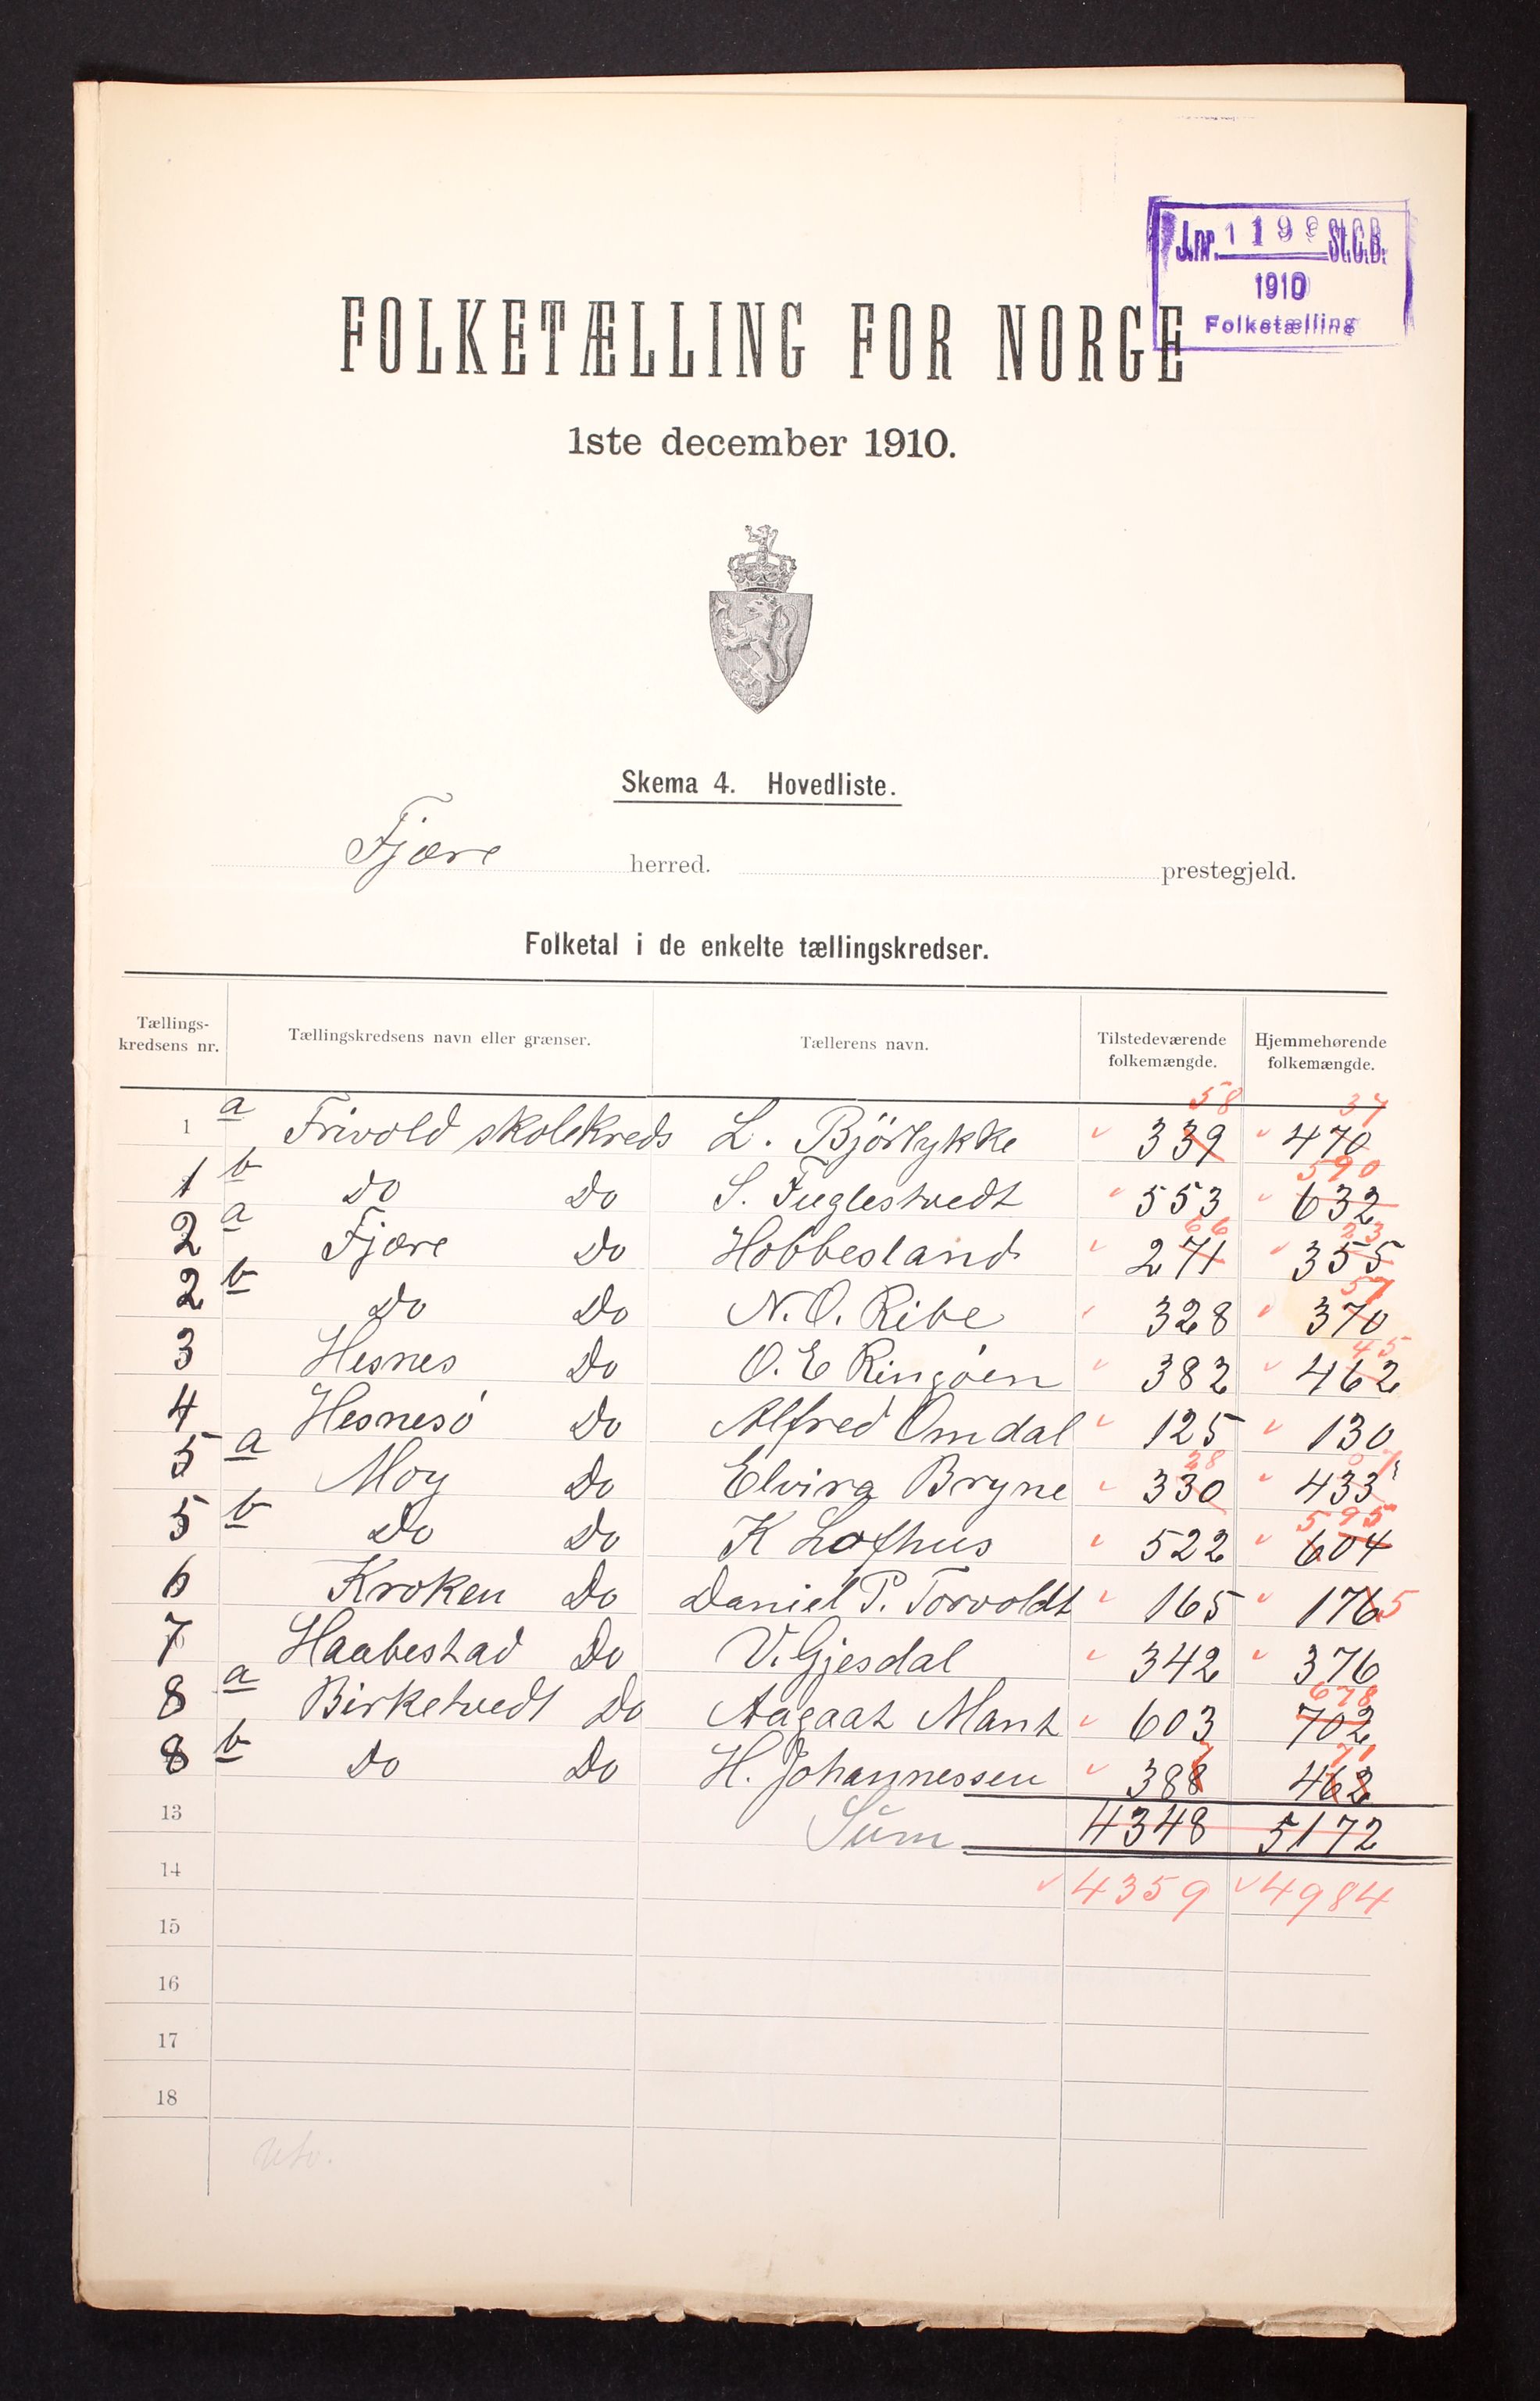 J.nr. 1199 St.C.B.
1910
Folketælling
FOLKETÆLLING FOR NORGE
1ste december 1910.
Skema 4. Hovedliste.
Fjære herred. prestegjeld.
Folketal i de enkelte tællingskredser.
Tællings-kredsens nr. Tællingskredsens navn eller grænser. Tællerens navn. Tilstedeværende folkemængde. Hjemmehørende folkemængde.
58 37
1 a Frivold skolekreds L. Björlykke 339 470
590
1 b Do Do S. Fuglestvedt 553 632
66 23
2 a Fjære Do Hobbesland 271 355
57
2 b Do Do N. O. Ribe 328 370
45
3 Hesnes Do O. E Ringöen 382 462
4 Hesnesö Do Alfred Omdal 125 130
28 07
5 a Moy Do Elvira Bryne 330 433
595
5 b Do Do K Lofthus 522 604
6 Kroken Do Daniel P. Torvoldt 165 176 5
7 Haabestad Do V. Gjesdal 342 376
678
8 a Birketvedt Do Aagaat Mant 603 702
7 71
8 b Do Do H. Johannessen 388 462
13 Sum 4348 5172
14 4359 4984
15
16
17
18